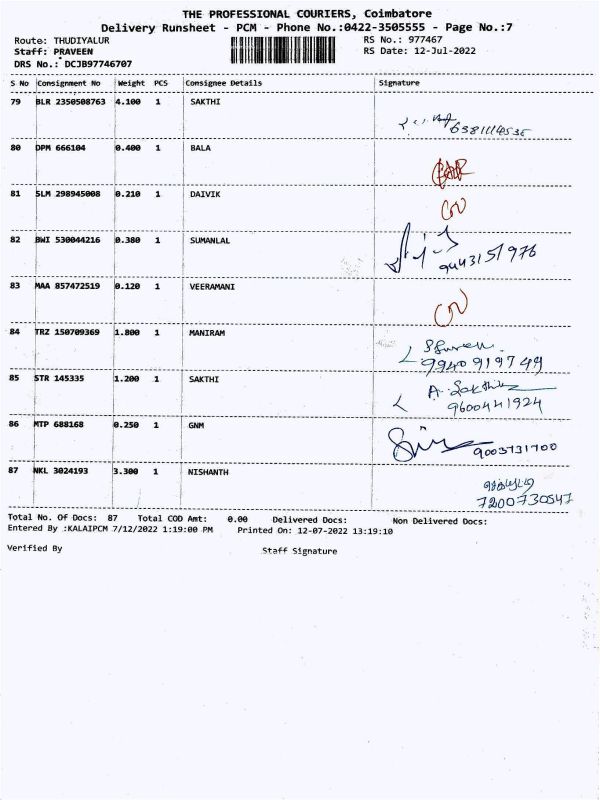 THE PROFESSIONAL COURIERS, Coimbatore
Delivery Runsheet - PCM - Phone No.:0422-3505555 - Page No.:7
Route: THUDIYALUR
RS No.: 977467
Staff: PRAVEEN
RS Date: 12-Jul-2022
DRS No.: DCJB97746707
S No Consignment No Weight PCS Consignee Details Signature
79 BLR 2350508763 4.100 1 SAKTHI
6381114535
80 DPM 666104 0.400 1 BALA
81 SLM 298945008 0.210 1 DAIVIK
82 BWI 530044216 0.380 1 SUMANLAL
9443151976
83 MAA 857472519 0.120 1 VEERAMANI
84 TRZ 150709369 1.800 1 MANIRAM
9940919749
85 STR 145335 1.200 1 SAKTHI
A. Sakthi
9600441924
86 MTP 688168 0.250 1 GNM
9003731700
87 NKL 3024193 3.300 1 NISHANTH
7200730547
Total No. Of Docs: 87 Total COD Amt: 0.00 Delivered Docs: Non Delivered Docs:
Entered By :KALAIPCM 7/12/2022 1:19:00 PM Printed On: 12-07-2022 13:19:10
Verified By Staff Signature